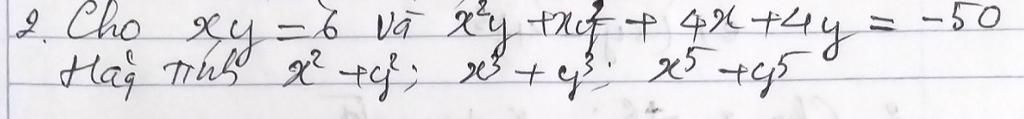 2. Cho xy = 6 và x²y + xy² + 4x + 4y = -50
Hãy tính x² + y²; x³ + y³; x⁵ + y⁵